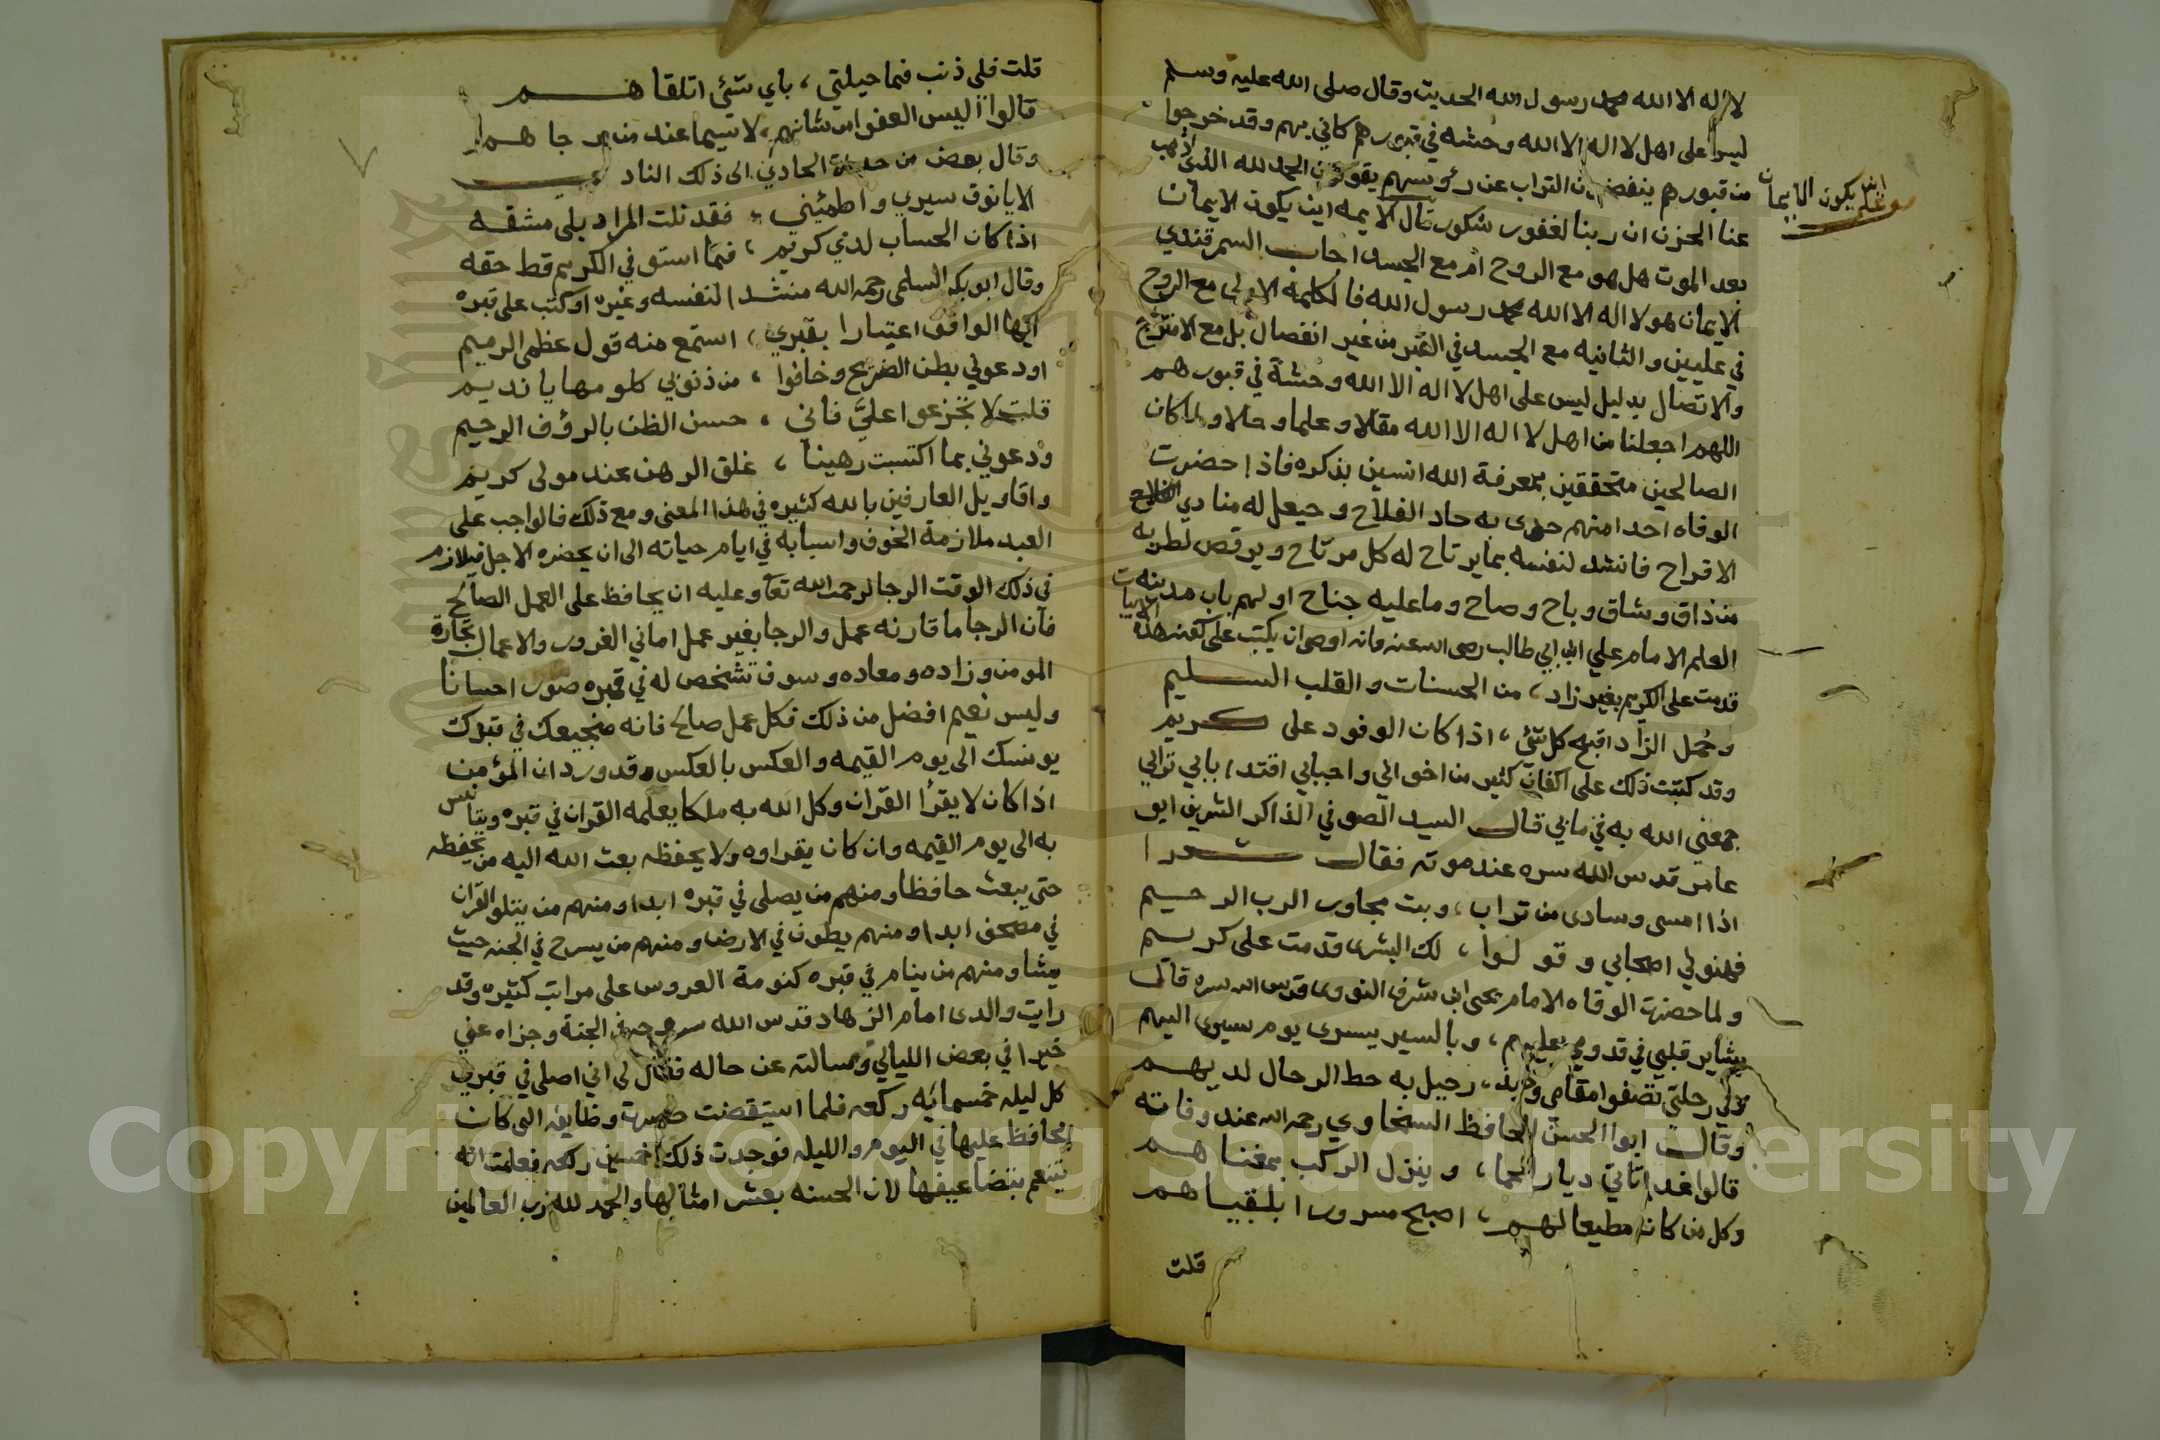 لا اله الا الله محمد رسول الله الحديث وقال صلى الله عليه وسلم
ليس على اهل لا اله الا الله وحشه في قبورهم كاني بهم وقد خرجوا
من قبورهم ينفضون التراب عن رؤسهم يقولون الحمد لله الذي اذهب
عنا الحزن ان ربنا لغفور شكور قال الايمه اين يكون الايمان
بعد الموت هل هو مع الروح ام مع الجسد اجاب السمرقندي
الايمان هو لا اله الا الله محمد رسول الله فالكلمة الاولى مع الروح
في عليين والثانيه مع الجسد في القبر من غير انفصال بل مع
والاتصال بدليل ليس على اهل لا اله الا الله وحشة في قبورهم
اللهم اجعلنا من اهل لا اله الا الله مقالا وعلما وحالا ولما كان
الصالحين متحققين بمعرفة الله انسين بذكره فاذا حضرت
الوفاه احدا منهم حدى به حاد الفلاح وحيعل له منادي
الافراح فانشد لنفسه بما يرتاح له كل مرتاح ويرقص لطربه
من ذاق وشاق وباح وصاح وما عليه جناح اولهم باب مدينة
العلم الامام علي ابن ابي طالب رضى الله عنه فانه اوصى ان يكتب على كفنه هذه الابيات
قدمت على الكريم بغير زاد، من الحسنات والقلب السليم
وحمل الزاد اقبح كل شئ، اذا كان الوفود على كريم
وقد كتبت ذلك على اكفان كثير من اخواني واحبابي اقتداء بابي ترابي
جمعني الله به في مابي قال السيد الصوفي الذاكر الشريف ابو
عامر قدس الله سره عند موته فقال شعرا
اذا امسى وسادى من تراب، وبت مجاور الرب الرحيم
فهنوني اصحابي وقولوا، لك البشرى قدمت على كريم
ولما حضرت الوفاه الامام يحيى ابن شرف النووى قدس الله سره قال
بشاير قلبي في قدومي عليهم، وبالسير يسرى يوم سيرى اليهم
وفي رحلتي تصفوا مقامى وحبذا، رحيل به حط الرحال لديهم
وقال ابوا الحسن الحافظ السخاوي رحمه الله عند وفاته
قالوا غدا تاتي ديار الحما، وينزل الركب بمغناهم
وكل من كان مطيعا لهم، اصبح مسرورا بلقياهم
قلت
اين يكون الايمان
قلت فلي ذنب فما حيلتي، باي شئ اتلقاهم
قالوا اليس العفو من شانهم، لا سيما عند من رجاهم
وقال بعض من حداه الحادي الى ذلك النادي
الا يا نوق سيري واطمئني، فقد نلت المراد بلى مشقه
اذا كان الحساب لدي كريم، فما استوفي الكريم قط حقه
وقال ابو بكر السلمى رحمه الله منشدا لنفسه وغيره او كتب على قبره
ايها الواقف اعتبارا بقبري، استمع منه قول عظمى الرميم
اودعوني بطن الضريح وخافوا، من ذنوبي كلومها يا نديم
قلت لا تجزعوا عليّ فاني، حسن الظن بالرؤف الرحيم
ودعوني بما اكتسبت رهينا، غلق الرهن عند مولى كريم
واقاويل العارفين بالله كثيره في هذا المعنى ومع ذلك فالواجب على
العبد ملازمة الخوف واسبابه في ايام حياته الى ان يحضره الاجل فيلازم
في ذلك الوقت الرجا لرحمة الله تعا وعليه ان يحافظ على العمل الصالح
فان الرجا ما قارنه عمل والرجا بغير عمل اماني الغرور والاعمال تجارة
المومن وزاده ومعاده وسوف تشخص له في قبره صور احسانا
وليس نعيم افضل من ذلك فكل عمل صالح فانه ضجيعك في قبرك
يونسك الى يوم القيمه والعكس بالعكس وقد ورد ان المؤمن
اذا كان لا يقرأ القران وكل الله به ملكا يعلمه القران في قبره ويتانس
به الى يوم القيمه وان كان يقراوه ولا يحفظه بعث الله اليه من يحفظه
حتى يبعث حافظا ومنهم من يصلى في قبره ابدا ومنهم من يتلو القران
في مصحف ابدا ومنهم يطوف في الارض ومنهم من يسرح في الجنه حيث
يشا ومنهم من ينام في قبره كنومة العروس على مراتب كثيره وقد
رايت والدى امام الزهاد قدس الله سره في الجنة وجزاه عني
خيرا في بعض الليالي وسالته عن حاله فقال لي اني اصلى في قبري
كل ليله خمسمائه ركعه فلما استيقضت وظايفه التى كان
يحافظ عليها في اليوم والليله فوجدت ذلك خمسين ركعه فعلمت انه
يتنعم بتضاعيفها لان الحسنه بعشر امثالها والحمد لله رب العالمين
Copyright © King Saud University